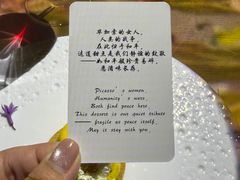 毕加索的女人，
人类的战争，
在此归于和平
这道甜点是我们静谧的致敬
——如和平般珍贵易碎，
愿随味长存。
Picasso's women,
Humanity's wars,
Both find peace here
This dessert is our quiet tribute
—— fragile as peace itself,
May it stay with you.